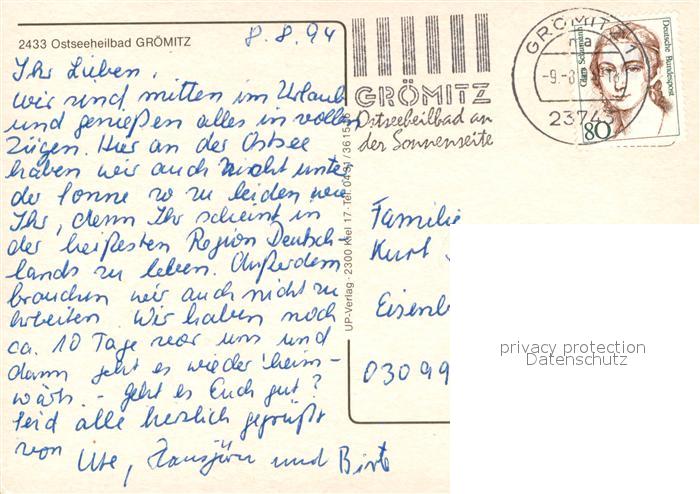 2433 Ostseeheilbad GRÖMITZ
8.8.94
Ihr Lieben,
wir sind mitten im Urlaub
und genießen alles in vollen
Zügen. Hier an der Ostsee
haben wir auch nicht unter
der Sonne so zu leiden wie
Ihr, denn Ihr scheint in
der heißesten Region Deutsch-
lands zu leben. Außerdem
brauchen wir auch nicht zu
arbeiten. Wir haben noch
ca. 10 Tage vor uns und
dann geht es wieder heim-
wärts. - geht es Euch gut?
Seid alle herzlich gegrüßt
von Ute, Hansjörn und Birte
UP-Verlag · 2300 Kiel 17 · Tel. 0431/3615
GRÖMITZ
Ostseeheilbad an
der Sonnenseite
GRÖMITZ 1
na
-9.-8
23743
Deutsche Bundespost
Clara Schumann
80
Familie
Kurt
Eisenb
03099
privacy protection
Datenschutz